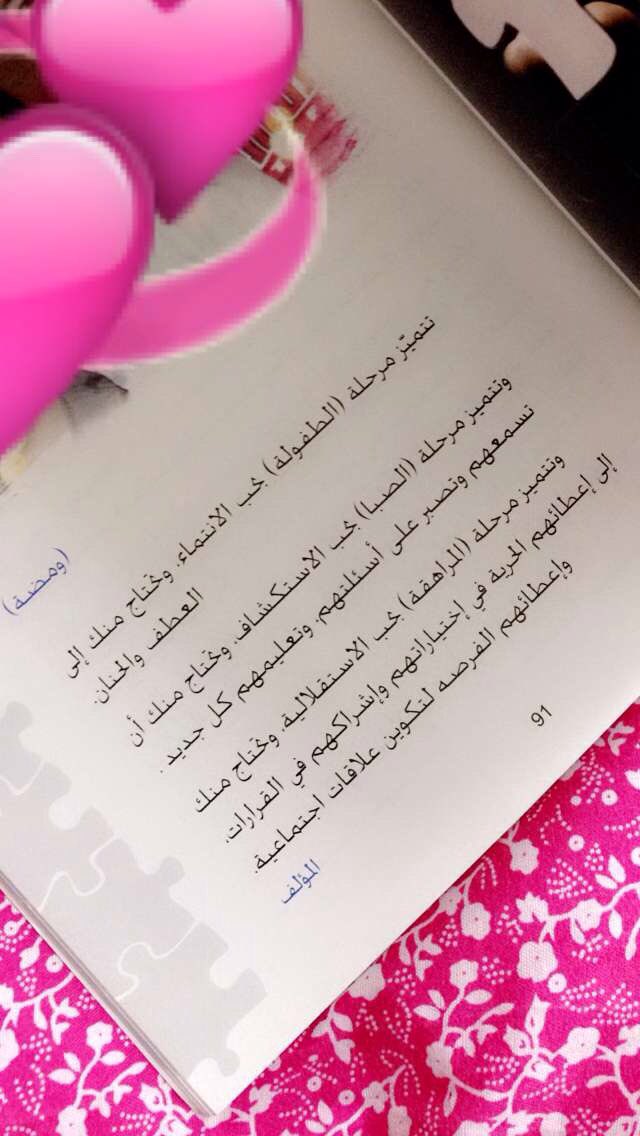 (ومضة)
تتميّز مرحلة (الطفولة) بحُب الانتماء، وتحُتاج منك إلى
العطف والحنان.
وتتميز مرحلة (الصبا) بحُب الاستكشاف، وتحُتاج منك أن
تسمعهم وتصبر على أسئلتهم، وتعليمهم كل جديد .
وتتميز مرحلة (المراهقة) بحُب الاستقلالية، وتحُتاج منك
إلى إعطائهم الحرية في إختياراتهم وإشراكهم في القرارات،
وإعطائهم الفرصه لتكوين علاقات اجتماعية.
المؤلف
91